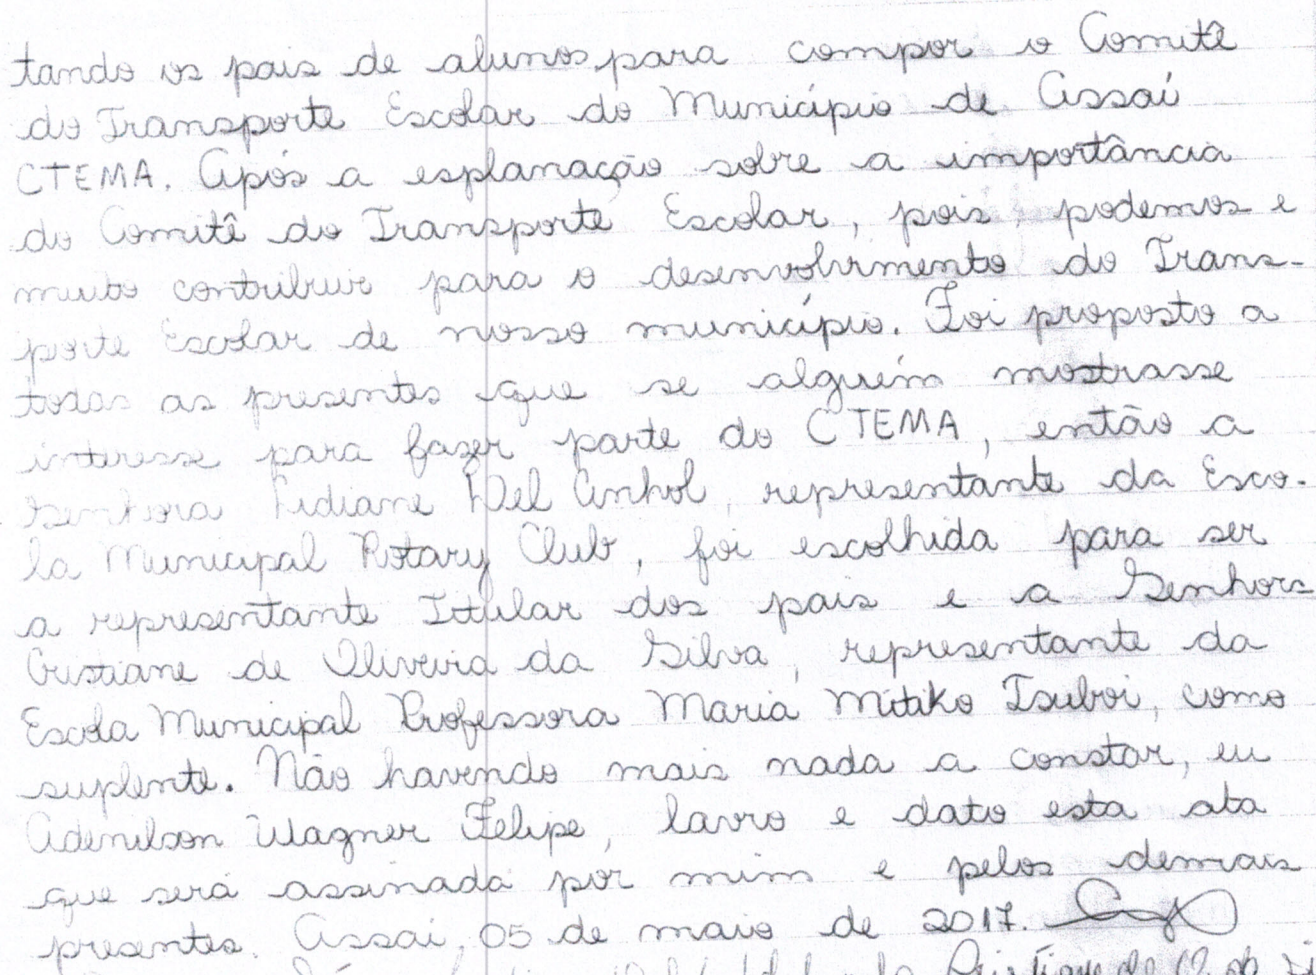 tando os pais de alunos para compor o Comitê
do Transporte Escolar do Município de Assaí
CTEMA. Após a esplanação sobre a importância
do Comitê do Transporte Escolar, pois, podemos e
muito contribuir para o desenvolvimento do Trans-
porte Escolar de nosso município. Foi proposto a
todas as presentes que se alguém mostrasse
interesse para fazer parte do CTEMA, então a
Senhora Lidiane Del Anhol, representante da Esco-
la Municipal Rotary Club, foi escolhida para ser
a representante Titular dos pais e a Senhora
Cristiane de Oliveira da Silva, representante da
Escola Municipal Professora Maria Mitiko Tsuboi, como
suplente. Não havendo mais nada a constar, eu
Adenilson Wagner Felipe, lavro e dato esta ata
que será assinada por mim e pelos demais
presentes. Assaí, 05 de maio de 2017.